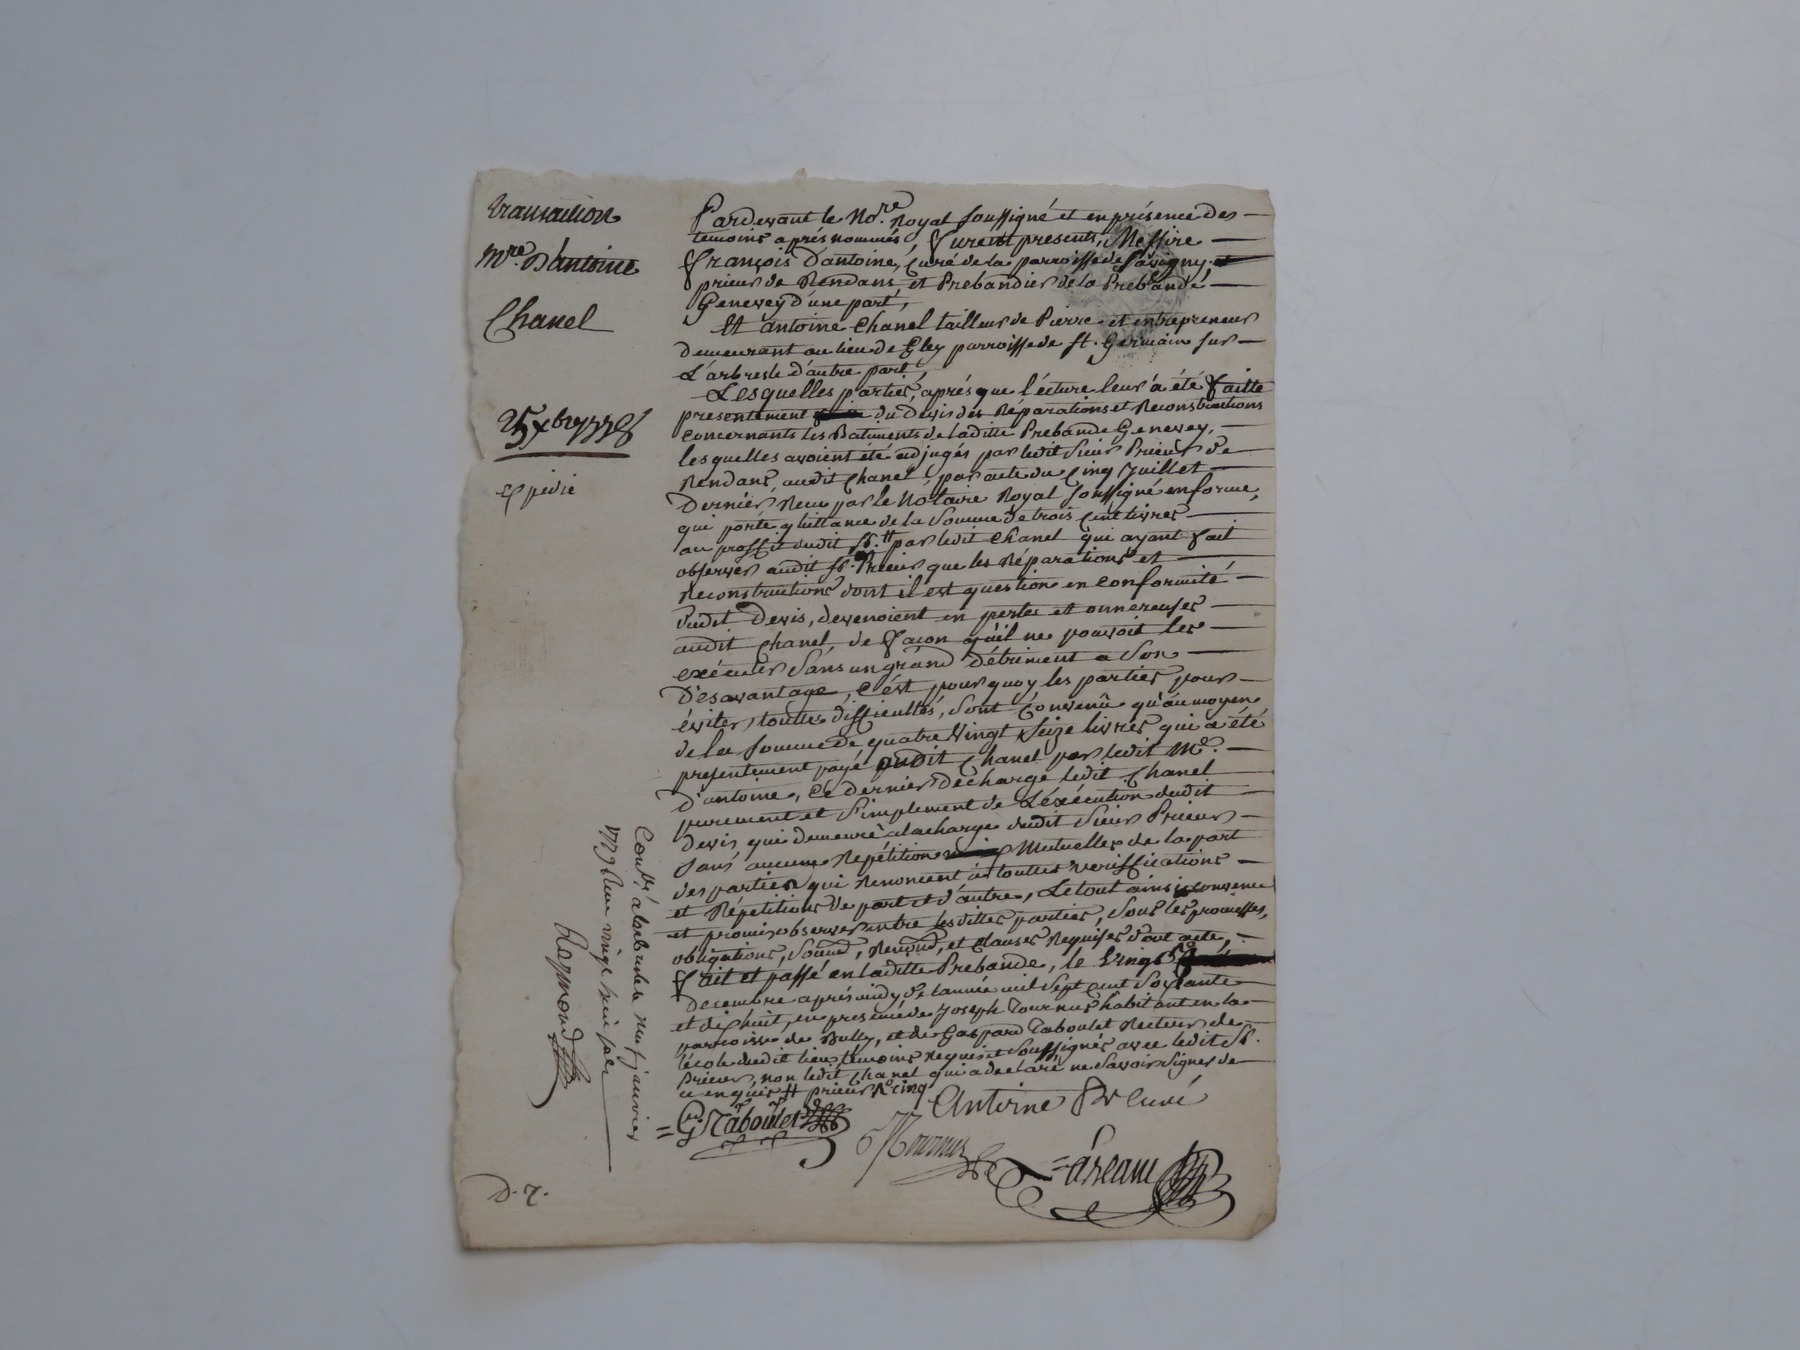 transaction
Mre. Dantoine
Chanel
25 xbre 1778
Expédié
Pardevant le Nore. Royal soussigné et en présence des
temoins aprés nommés, furent presents, Messire
françois D'antoine, Curé de la parroisse de Savigny
prieur de Rendans, et Prebandier de la Prebande
Genevey d'une part,
Et antoine Chanel tailleur de Pierre et entrepreneur
demeurant au lieu de Gley parroisse de st. Germain sur
L'arbresle d'autre part,
Lesquelles parties, aprés que lécture leur a été faitte
presentement du Devis des Réparations et Reconstructions
concernants les Batiments de laditte Prebande Genevey,
lesquelles avoient été adjugés par ledit Sieur Prieur de
Rendans, audit Chanel, par acte du Cinq Juillet
Dernier, Reçu par le Notaire Royal soussigné en forme,
qui porte quittance de la somme de trois Cent livres
au proffit dudit Sr. par ledit Chanel qui ayant fait
observer audit Sr. Prieur que les Réparations et
Reconstructions dont il est question en conformité
dudit Devis, devenoient en pertes et onnereuses
audit Chanel, de façon qu'il ne pouvoit les
exécuter sans un grand détriment a son
Désavantage, C'ést pourquoy les parties pour
éviter touttes difficultés, sont Convenû qu'au moyen
de la somme de quatre Vingt seize livres qui a été
presentement payé audit Chanel par ledit Me.
D'antoine, Ce dernier décharge ledit Chanel
purement et simplement de L'éxécution dudit
Devis, qui demeure à la charge dudit Sieur Prieur
sans aucune Repétition Mutuelles de la part
des parties qui Renoncent à touttes veriffications
et Répétitions de part et d'autre, Le tout ainsi convenu
et promis observer entre lesdittes parties, sous les promesses,
obligations, soumd, Renond, et Clauses Requises dont acte,
fait et passé en laditte Prebande, le Vingt 5e
Decembre aprés midy de L'année mil sept Cent soixante
et dix huit, en presence de Joseph Tournus habitant en la
parroisse de Bully, et de Gaspard Taboulet Recteur de
l'école dudit lieu temoins Requis et soussignés avec ledit Sr.
Prieur, non ledit Chanel qui a declaré ne savoir signer de
ce enquis prieur cinq
Antoine Curé
G. Taboulet
Tournus
Contlé à larbresle neuf janvier
1779 Reçu vingt huit sols
Raymond